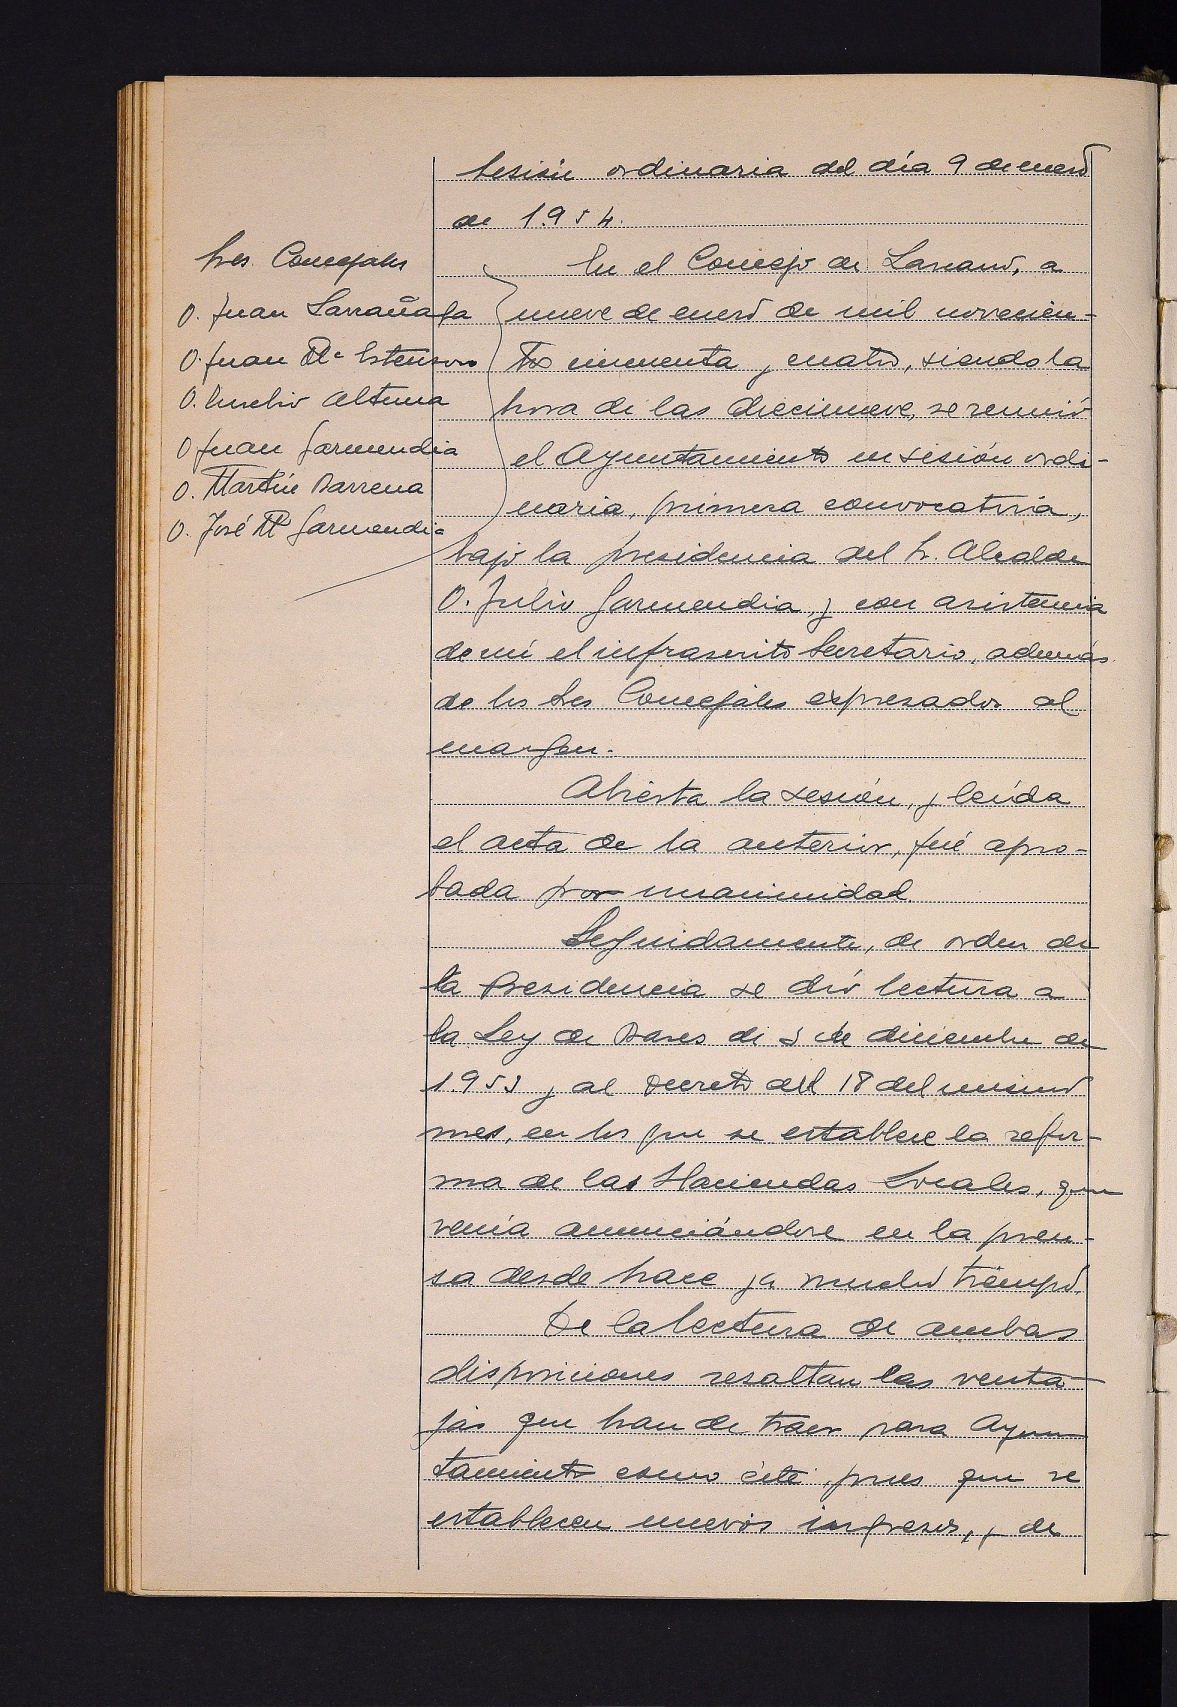 Sesión ordinaria del día 9 de enero
de 1.954.
Sres. Concejales
D. Juan Larrañaga
D. Juan Mª Ostensoro
D. Eusebio Altuna
D. Juan Garmendia
D. Martín Barrena
D. José Mª Garmendia
En el Concejo de Larraul, a
nueve de enero de mil novecien-
tos cincuenta y cuatro, siendo la
hora de las diecinueve, se reunió
el Ayuntamiento en sesión ordi-
naria, primera convocatoria,
bajo la presidencia del Sr. Alcalde
D. Julio Garmendia, y con asistencia
de mí el infrascrito Secretario, además
de los Sres Concejales expresados al
margen.
Abierta la sesión, y leída
el acta de la anterior, fué apro-
bada por unanimidad.
Seguidamente, de orden de
la Presidencia se dió lectura a
la Ley de Bases de 3 de diciembre de
1.953 y al Decreto del 18 del mismo
mes, en los que se establece la refor-
ma de las Haciendas Locales, que
venía anunciándose en la pren-
sa desde hace ya mucho tiempo.
De la lectura de ambas
disposiciones resaltan las venta-
jas que han de traer para Ayun
tamiento como éste, pues que se
establecen nuevos ingresos, y de